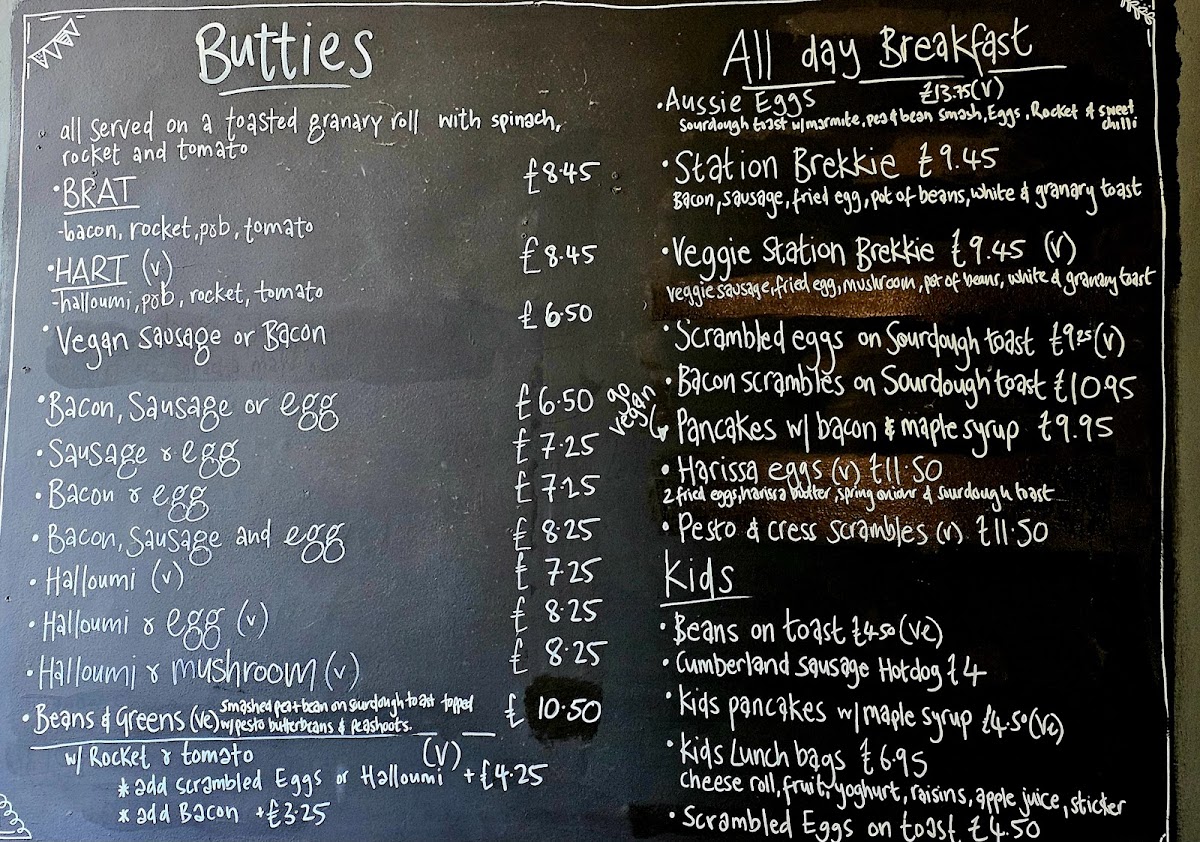 Butties
all served on a toasted granary roll with spinach,
rocket and tomato
• BRAT £8.45
-bacon, rocket, pob, tomato
• HART (v) £8.45
-halloumi, pob, rocket, tomato
• Vegan Sausage or Bacon £6.50
• Bacon, Sausage or egg £6.50
• Sausage & egg £7.25
• Bacon & egg £7.25
• Bacon, Sausage and egg £8.25
• Halloumi (v) £7.25
• Halloumi & egg (v) £8.25
• Halloumi & mushroom (v) £8.25
• Beans & Greens (ve) smashed pea + bean on sourdough toast topped £10.50
w/pesto butterbeans & peashoots.
w/ Rocket & tomato (V)
* add scrambled Eggs or Halloumi + £4.25
* add Bacon + £3.25
All day Breakfast
• Aussie Eggs £13.75 (V)
Sourdough toast w/marmite, pea & bean smash, Eggs, Rocket & sweet
chilli
• Station Brekkie £9.45
Bacon, sausage, fried egg, pot of beans, white & granary toast
• Veggie Station Brekkie £9.45 (v)
veggie sausage, fried egg, mushroom, pot of beans, white & granary toast
• Scrambled eggs on Sourdough toast £9.25 (v)
• Bacon scrambles on Sourdough toast £10.95
go
vegan
• Pancakes w/ bacon & maple syrup £9.95
• Harissa eggs (v) £11.50
2 fried eggs, harissa butter, spring onions & sourdough toast
• Pesto & cress scrambles (v) £11.50
Kids
• Beans on toast £4.50 (ve)
• Cumberland sausage Hotdog £4
• Kids pancakes w/maple syrup £4.50 (ve)
• Kids Lunch bags £6.95
cheese roll, fruit, yoghurt, raisins, apple juice, sticker
• Scrambled Eggs on toast £4.50